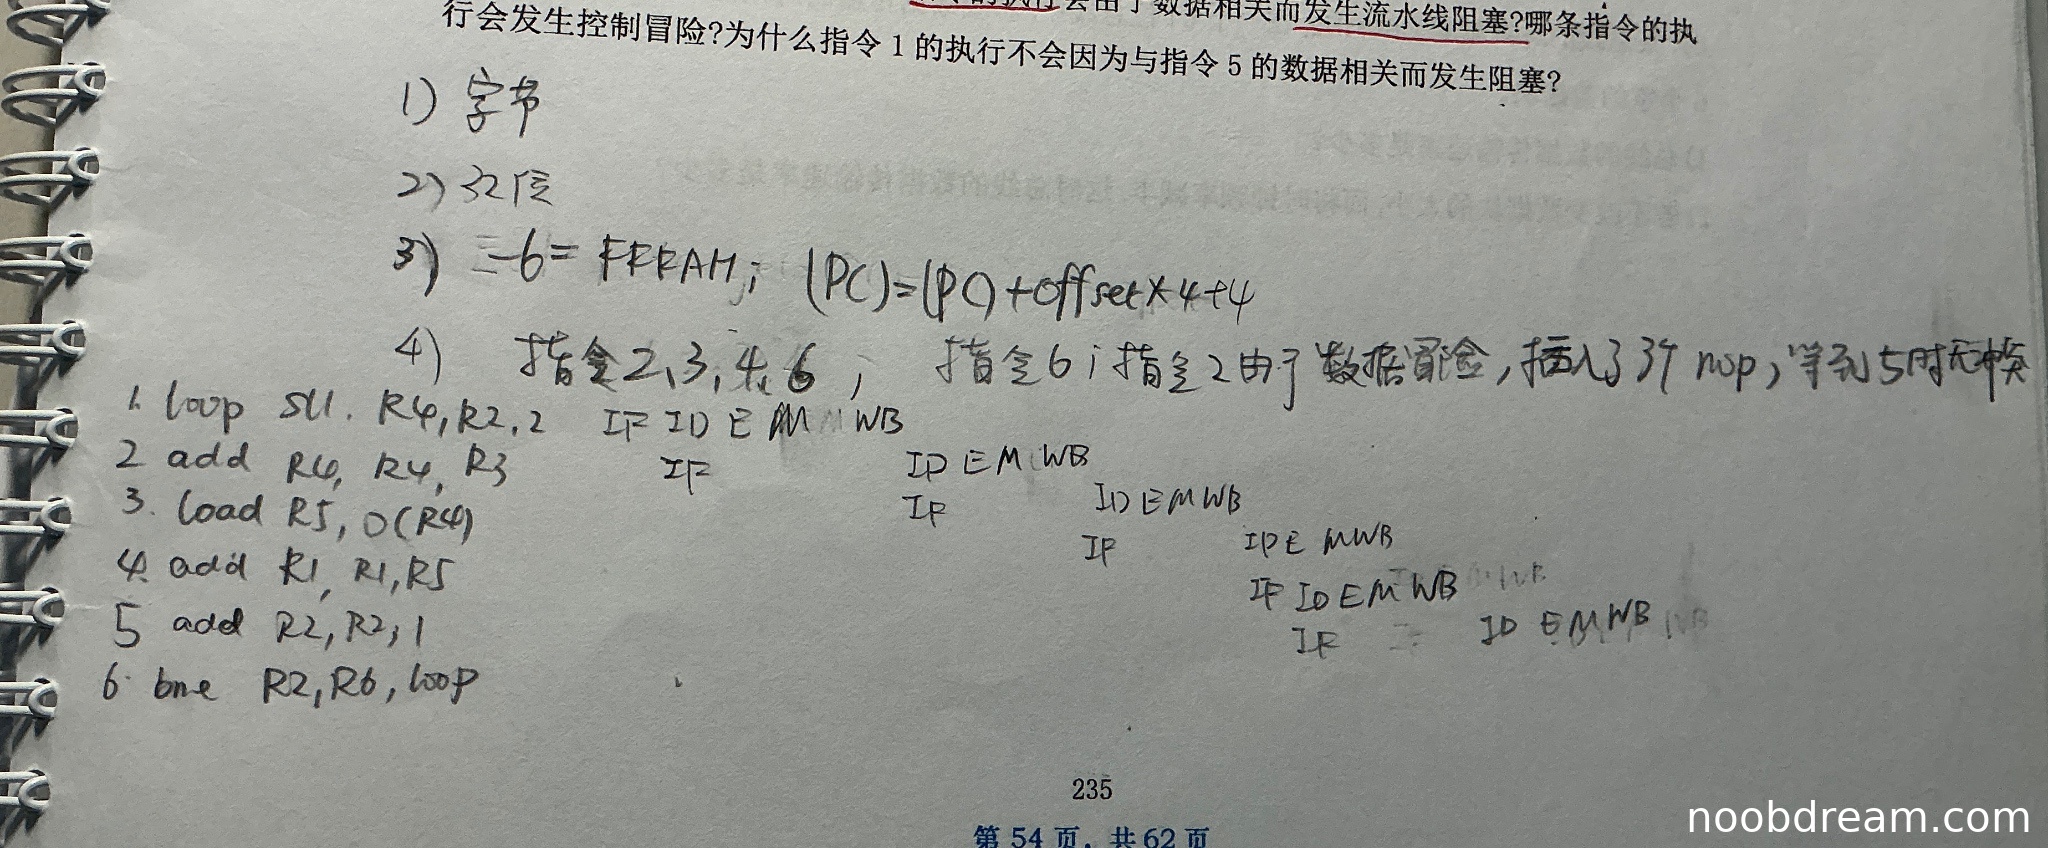 令的执行会由于数据相关而发生流水线阻塞?哪条指令的执
行会发生控制冒险?为什么指令 1 的执行不会因为与指令 5 的数据相关而发生阻塞?
1) 字节
2) 32位
3) -6= FFFAH; (PC)=(PC)+offset×4+4
4) 指令2、3、4、6; 指令6; 指令2由于数据冒险,插入了3个nop,等到5时无冲突
1. loop sll. R4,R2,2 IF ID E M WB
2 add R4, R4, R3 IF ID E M WB
3. load R5, 0(R4) IF ID E M WB
4. add R1, R1,R5 IF ID E M WB
5 add R2, R2, 1 IF ID E M WB
6. bne R2, R6, loop IF ID E M WB
235
第 54 页, 共 62 页
noobdream.com